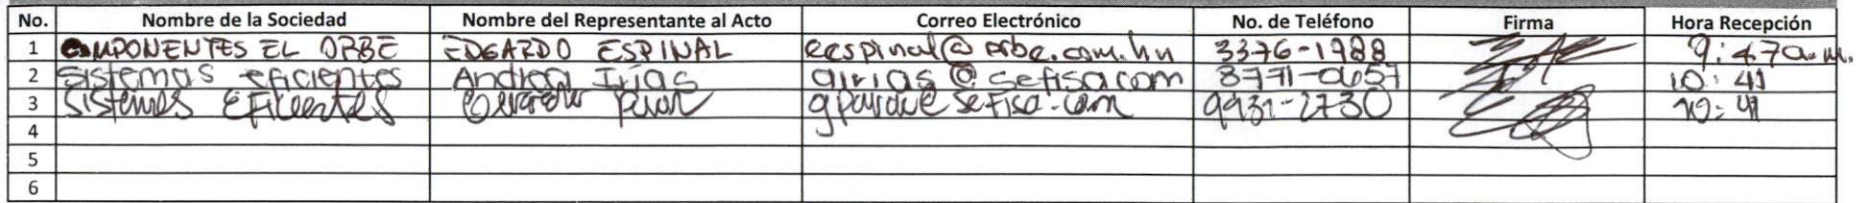 No. Nombre de la Sociedad Nombre del Representante al Acto Correo Electrónico No. de Teléfono Firma Hora Recepción
1 COMPONENTES EL ORBE EDGARDO ESPINAL eespinal@orbe.com.hn 3376-1988 9:47a.m.
2 Sistemas eficientes Andrea Irías airias@sefisa.com 8771-0657 10:41
3 Sistemas Eficientes 9931-2730 10:41
4
5
6